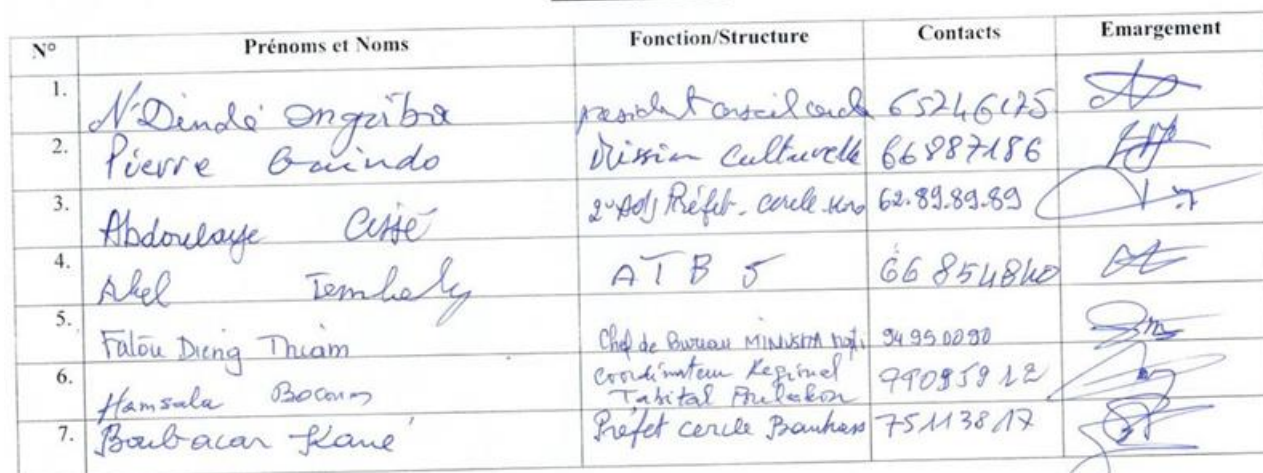 N° Prénoms et Noms Fonction/Structure Contacts Emargement
1. N'Dindé Ongoïba président conseil cercle 65246175
2. Pierre Guindo Mission Culturelle 66887186
3. Abdoulaye Cissé 2e Adj Préfet - cercle 62.89.89.89
4. Abel Tembely ATB 5 66854840
5. Fatou Dieng Thiam Chef de Bureau MINUSMA Mopti 94950090
6. Hamsala Bocoum coordinateur Régional Tabital Pulaakou
7. Boubacar Kané Préfet cercle Bankass 75113817